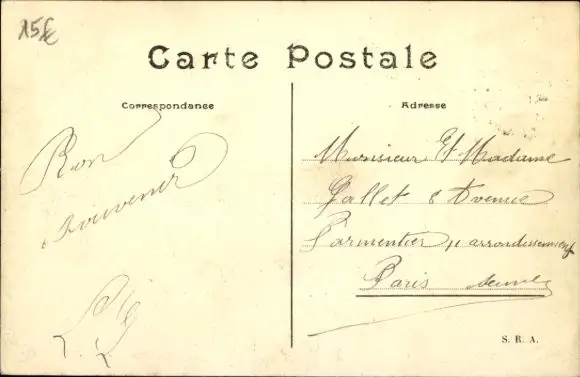 15£
Carte Postale
Correspondance
Adresse
Bon
Souvenir
Monsieur Et Madame
Gallet 8 Avenue
Parmentier 11 arrondissement
Paris Seine
S. R. A.